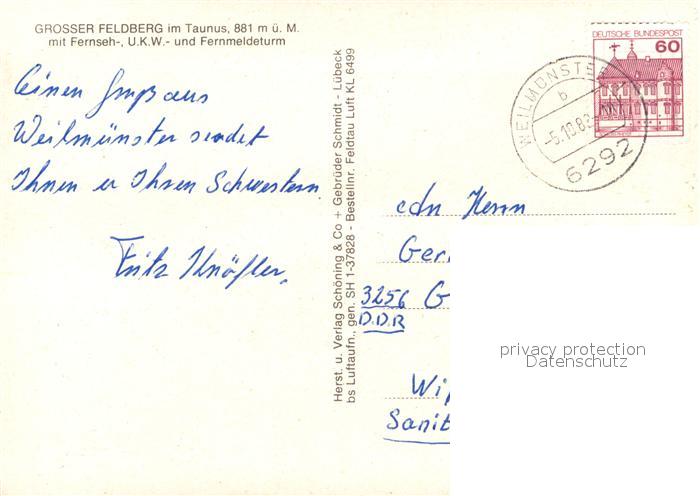 GROSSER FELDBERG im Taunus, 881 m ü. M.
mit Fernseh-, U.K.W.- und Fernmeldeturm
Einen Gruß aus
Weilmünster sendet
Ihnen u Ihren Schwestern
Fritz
Herst. u. Verlag Schöning & Co + Gebrüder Schmidt - Lübeck
bs Luftaufn., gen. SH 1-37828 - Bestellnr. Feldtau Luft KL 6499
DEUTSCHE BUNDESPOST
60
WEILMÜNSTE
b
-5.10.83
6292
An Herrn
Ger
3256 G
D.D.R
privacy protection
Datenschutz
Wip
Sanit